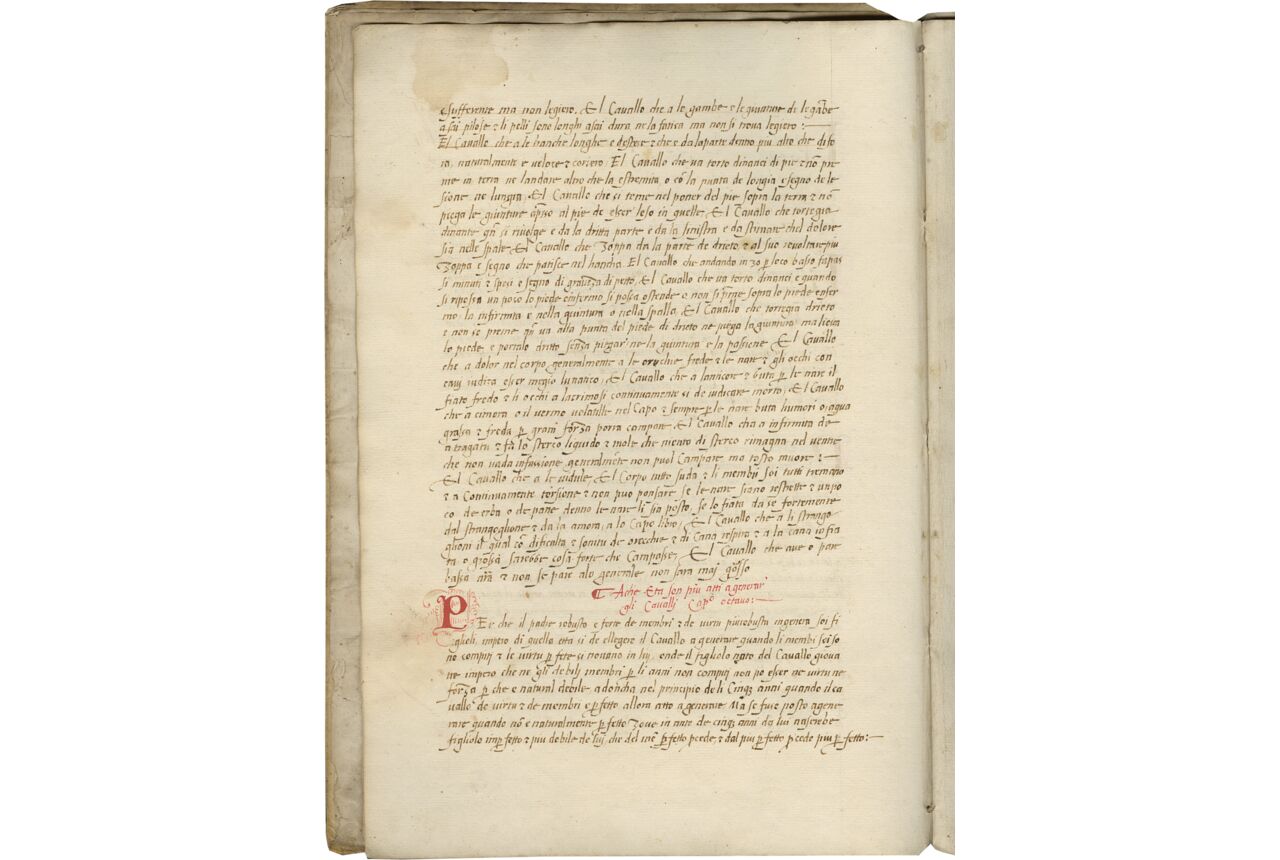 sufferente ma non legiero. El Cauallo che a le gambe e le giunture de legābe
asai pilose & li pelli sono longhi asai dura ne la fatica ma non si troua legiero:
El Cauallo che a le hanche longhe e destese & che e da la parte drento piu alto che di fo
ra, naturalmente e veloce & coriero, El Cauallo che ua torto dinanci di pie & nō pre
me in terra ne landare altro che la estremita, o cō la punta de longia e segno de le
sione ne lungia, El Cauallo che si teme nel poner del pie sopra la terra & nō
piega le giunture apreso al pie de eser leso in quelle, El Cauallo che torcegia
dinante qn̄ si riuolge e da la dritta parte e da la sinistra e da stimare chel dolore
sia nelle spale, El Cauallo che Zoppa da la parte de drieto & al suo reuoltare piu
Zoppa e segno che patisce nel hancha. El Cauallo che andando in zo p loco basso fa pas
si minuti & spesi e segno di graueza di petto, El Cauallo che ua torto dinanci e quando
si riposa un poco lo piede enfermo si posca ostende o non si p̄me sopra lo piede enfer
mo la infirmita e nella giuntura o nella spalla, El Cauallo che torcegia drieto
e non se preme qn̄ ua alla punta del piede di drieto ne piega la giuntura ma lieua
lo piede e portalo dritto senza piegar ne la giuntura e la pasione El Cauallo
che a dolor nel corpo generalmente a le orechie frede & le nare & gli occhi con
caui iudica eser megio lunatico, El Cauallo che a lanticor & buta p le nare il
fiato fredo & li occhi a lacrimosi continuamente si de iudicare morto, El Cauallo
che a cimora o il vermo volatille nel Capo & sempre p le nare buta humori o aqua
grossa & freda p gram forza porra campare El Cauallo cha a infirmita de
a tragatu & fa lo sterco liquido & mole che niento di sterco rimagna nel ventre
che non uada infusione generalmēte non puol Campare ma tosto muore:
El Cauallo che a le uidule, El Corpo tutto suda & li membri soi tutti tremano
& a Continuamente torsione & non puo ponsare se le nare siano restrette & un po
co de erba o de pane denno le nare li sia posto, se lo fiata da sē fortemente
dal strangoglione & da la amora, a lo Capo libro, El Cauallo che a li strango
glioni il qual cō dificulta & sonitu de orecchie & di Cana respira & a la cana infia
ta o grossa sarebbe cosa forte che Campasse, El Cauallo che aue o pare
bassa arā & non se pare alo generale non sara maj grosso
Ache Eta son piu atti a generar
gli Cavallj Capo octauo:
PEr che il padre robusto e forte de membri & de virtu piu robusta ingenera soi fi
glioli, impero di quello etta si de ellegere il Cauallo a generare quando li membri soi so
no compiti & le virtu pfete si trouano in luj, onde il figliolo nato del Cauallo gioua
ne impero che ne gli debilj membri p li anni non compiti non po eser ne virtu ne
forza p che e natural debile, adoncha nel principio de li Cinq; anni quando il ca
uallo de virtu & de membri e pfetto allora atto a generare Ma se fuse posto a gene
rare quando nō e naturalmente pfetto Zoue in nante de cinq; anni da lui naserebe
figliolo impfetto & piu debole de luj, che del mē pfetto pcede, & dal piu pfetto pcedo piu pfetto: